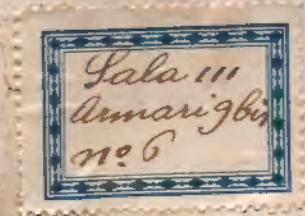 Sala III
Armari 9 bis
nº 6